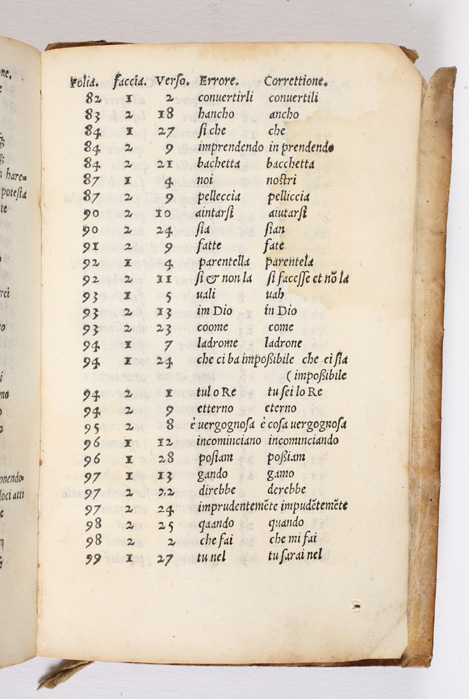 ne.
e
haren
potesta
te
rci
no
i
mo
e
nendo
loci atti
e
e
Folia. faccia. Verso. Errore. Correttione.
82 1 2 conuertirli conuertili
83 2 18 hancho ancho
84 1 27 si che che
84 2 9 imprendendo in prendendo
84 2 21 bachetta bacchetta
87 1 4 noi nostri
87 2 9 pelleccia pelliccia
90 2 10 aintarsi aiutarsi
90 2 24 sia sian
91 2 9 fatte fate
92 1 4 parentella parentela
92 2 11 si & non la si facesse et nō la
93 1 5 uali uah
93 2 13 im Dio in Dio
93 2 23 coome come
94 1 7 ladrome ladrone
94 1 24 che ci ba impossibile che ci sia
( impossibile
94 2 1 tul o Re tu sei lo Re
94 2 9 etterno eterno
95 2 8 è uergognosa è cosa uergognosa
96 1 12 incominciano incominciando
96 1 28 posiam possiam
97 1 13 gando gamo
97 2 22 direbbe derebbe
97 2 24 imprudentemēte impudētemēte
98 2 25 qaando quando
98 2 2 che fai che mi fai
99 1 27 tu nel tu sarai nel